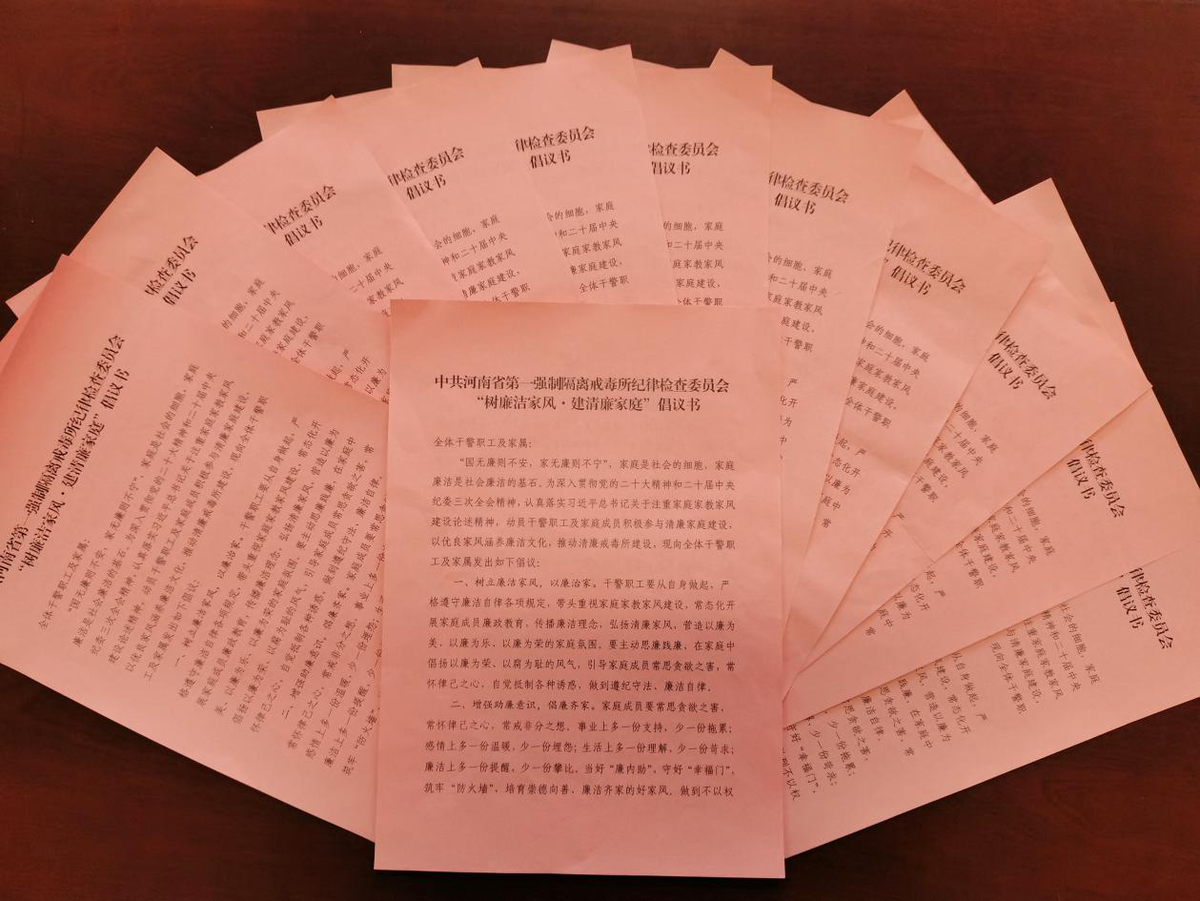 中共河南省第一强制隔离戒毒所纪律检查委员会
“树廉洁家风·建清廉家庭”倡议书
全体干警职工及家属:
“国无廉则不安，家无廉则不宁”，家庭是社会的细胞，家庭
廉洁是社会廉洁的基石。为深入贯彻党的二十大精神和二十届中央
纪委三次全会精神，认真落实习近平总书记关于注重家庭家教家风
建设论述精神，动员干警职工及家庭成员积极参与清廉家庭建设，
以优良家风涵养廉洁文化，推动清廉戒毒所建设，现向全体干警职
工及家属发出如下倡议:
一、树立廉洁家风，以廉治家。干警职工要从自身做起，严
格遵守廉洁自律各项规定，带头重视家庭家教家风建设，常态化开
展家庭成员廉政教育，传播廉洁理念，弘扬清廉家风，营造以廉为
美、以廉为乐、以廉为荣的家庭氛围。要主动思廉践廉，在家庭中
倡扬以廉为荣、以腐为耻的风气，引导家庭成员常思贪欲之害，常
怀律己之心，自觉抵制各种诱惑，做到遵纪守法、廉洁自律。
二、增强助廉意识，倡廉齐家。家庭成员要常思贪欲之害，
常怀律己之心，常戒非分之想，事业上多一份支持，少一份拖累；
感情上多一份温暖，少一份埋怨；生活上多一份理解，少一份苛求；
廉洁上多一份提醒，少一份攀比，当好“廉内助”，守好“幸福门”，
筑牢“防火墙”，培育崇德向善、廉洁齐家的好家风，做到不以权